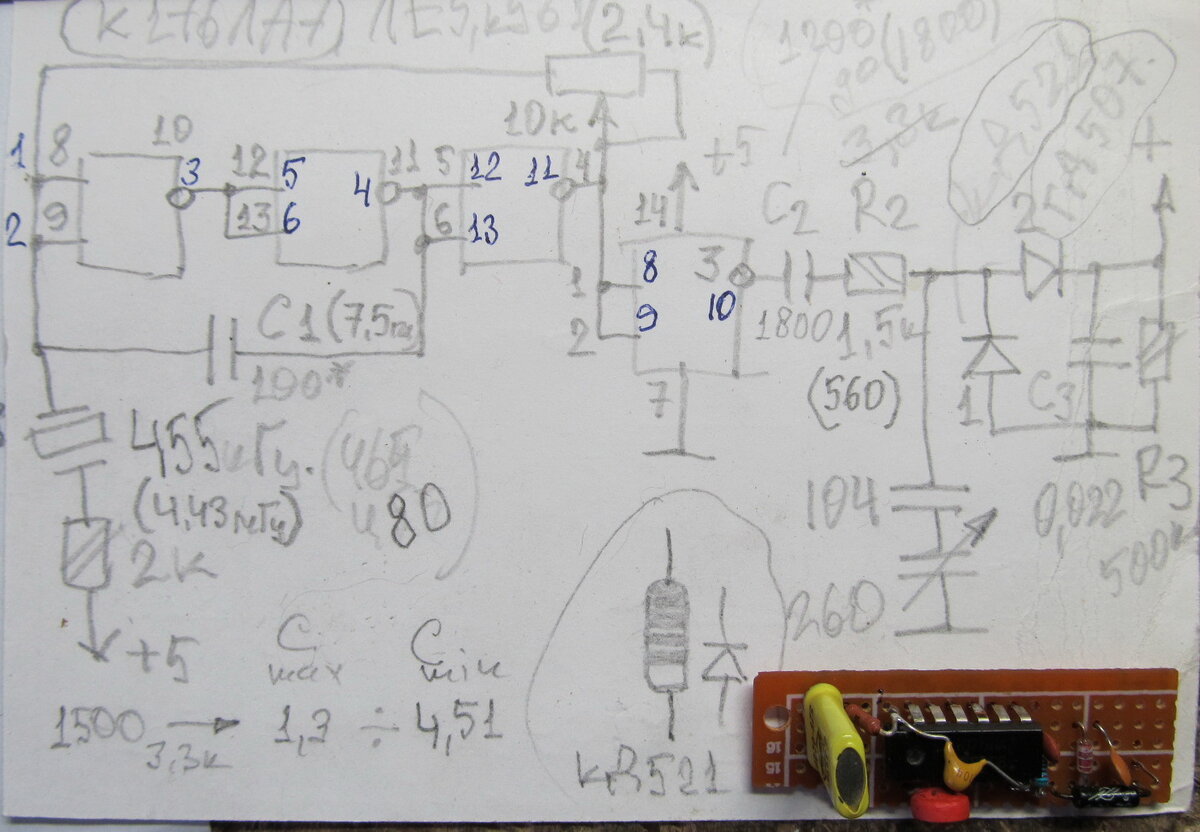 (К176ЛА7) ЛЕ5, к561 (2,4к)
1200 (1800)
3,3к
КД521
+
10к
+5
1 8 10 3 12 5 4 11 5 12 11 4
2 9 13 6 6 13
14
C2 R2 2
1 8 3
2 9 10
7
1800 1,5к
(560)
1 C3
C1 (7,5пц)
100*
455кГц. (465
(4,43мГц) 480)
2к
+5
104
260
0,022 R3
500к
C max C min
1500 → 1,3 ÷ 4,51
3,3к
кД521
16
15